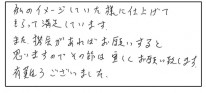 私のイメージしていた様に仕上げて
もらって満足しています
また機会があればお願いすると
思いますのでその節は宜しくお願い致します
有難うございました。